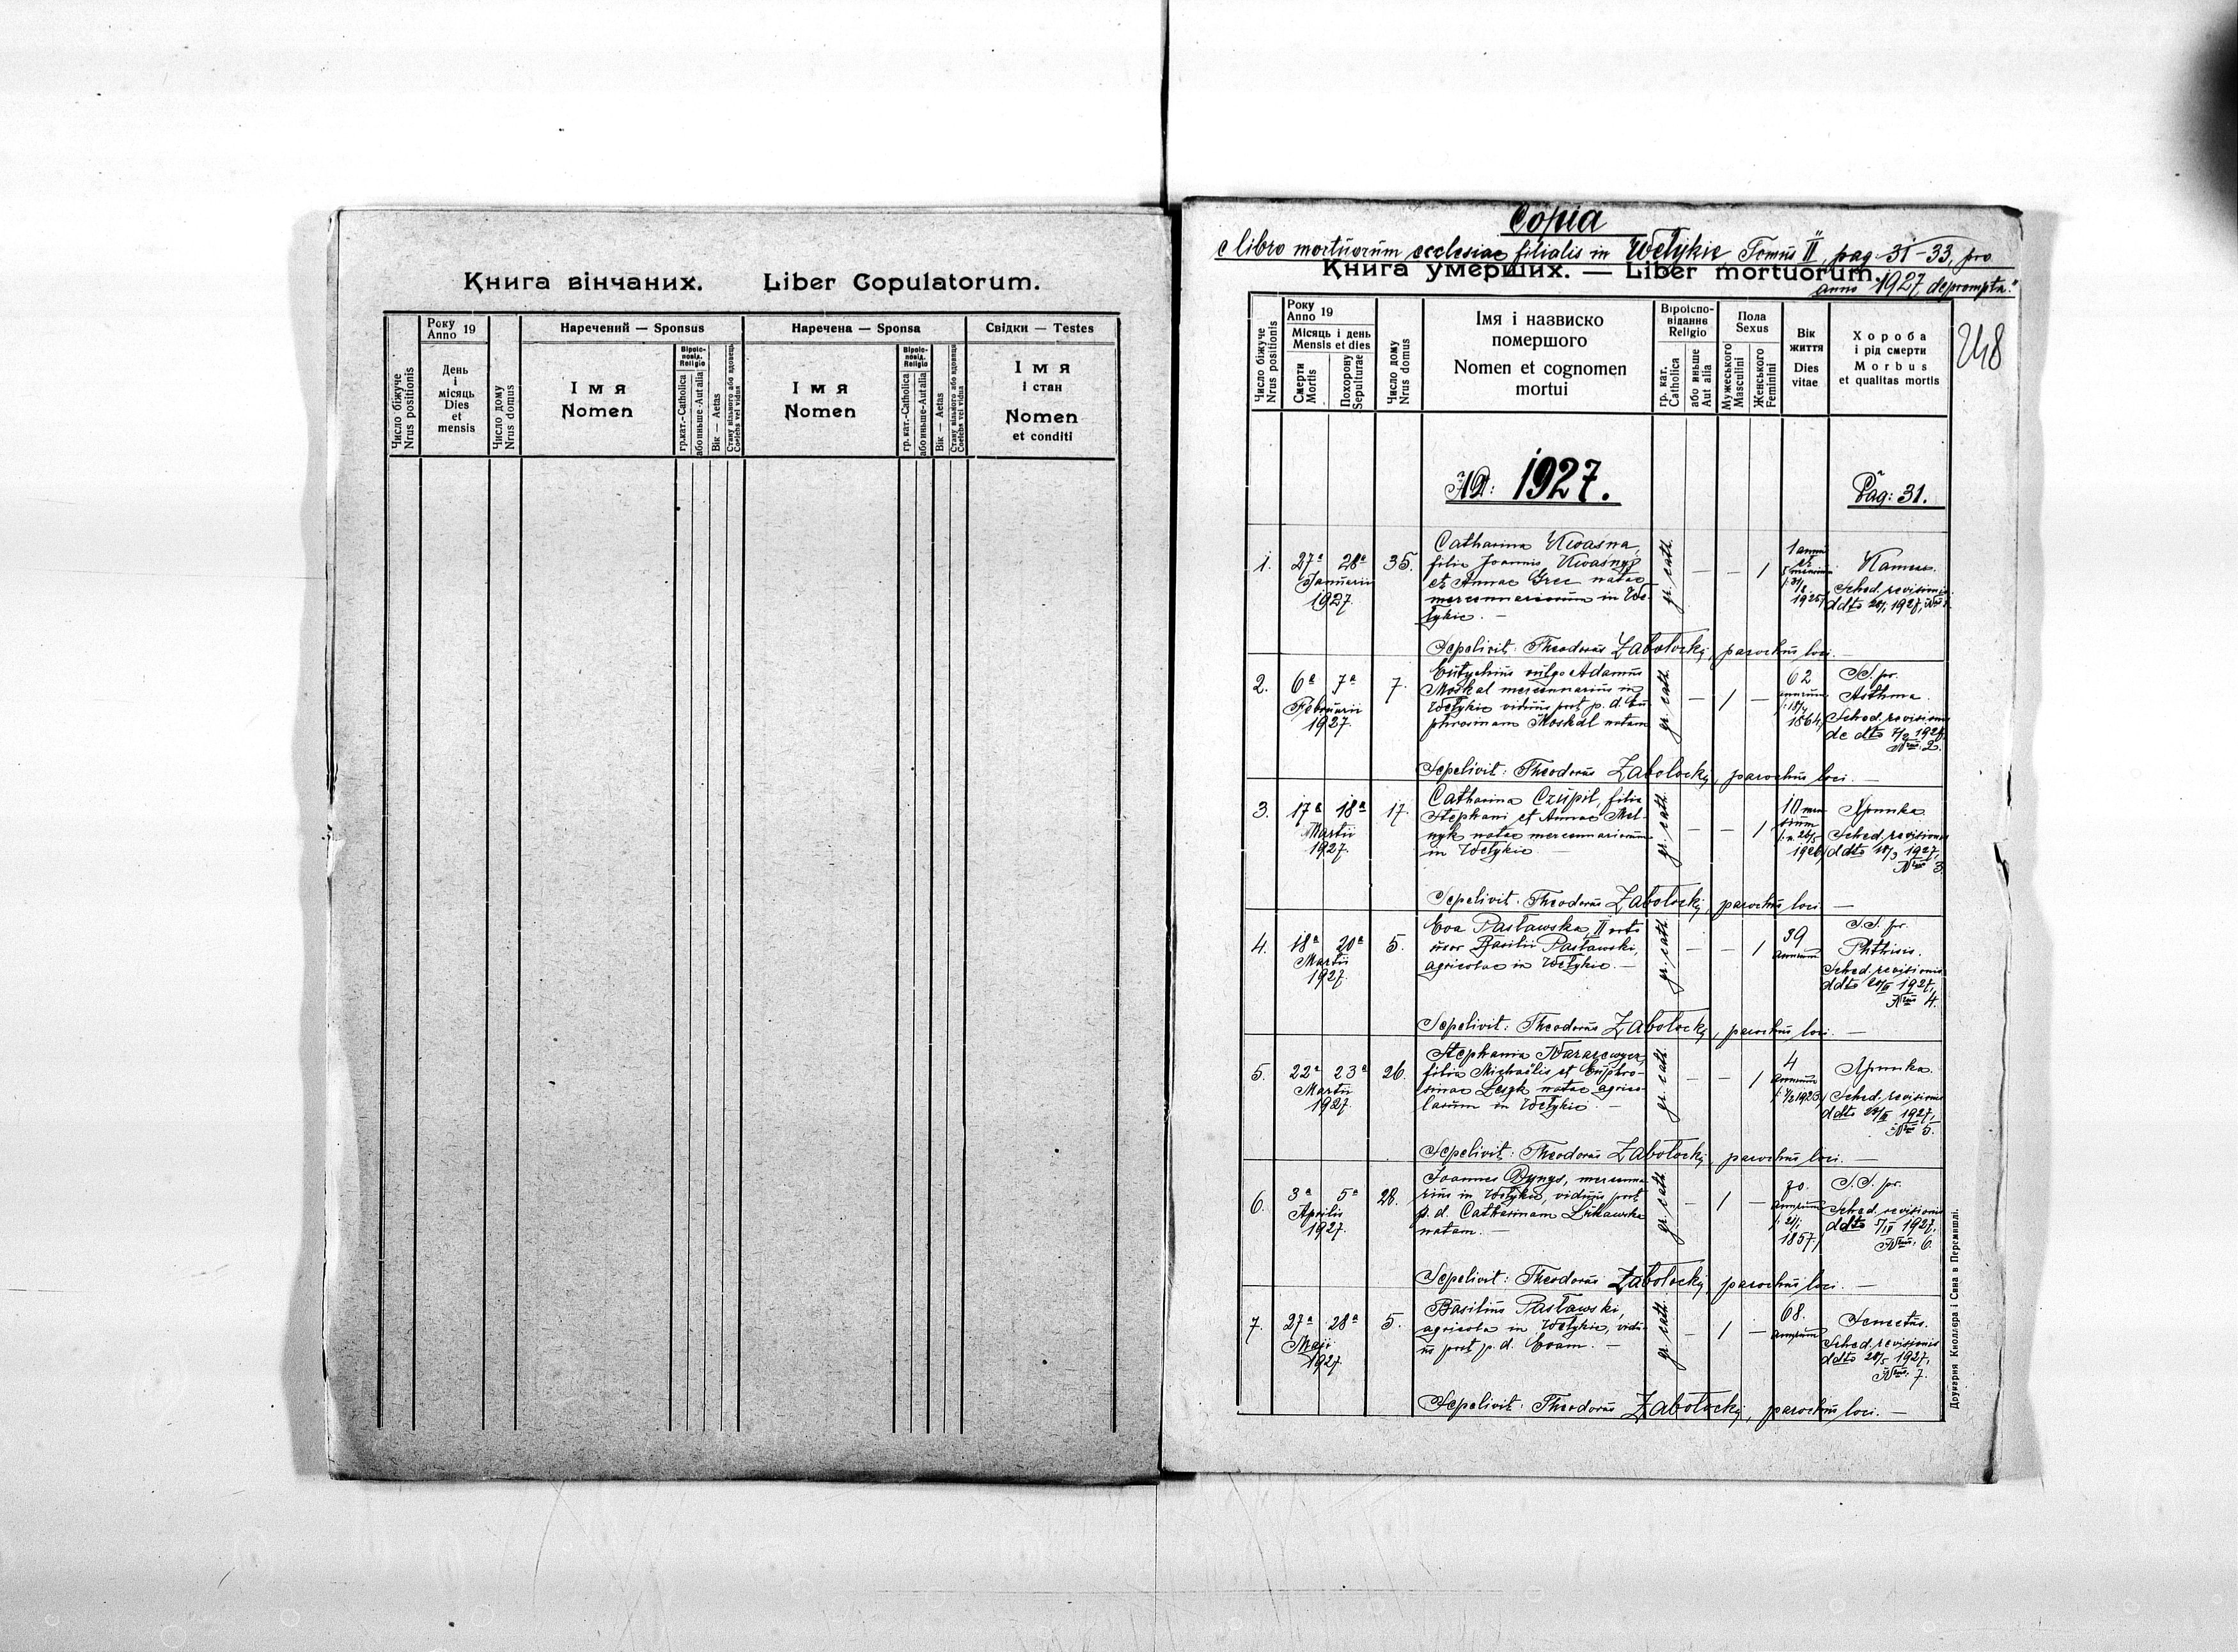 Книга вінчаних. Liber Copulatorum.
Число біжуче
Nrus positionis
Року
Anno 19
День
і
місяць
Dies
et
mensis
Число дому
Nrus domus
Наречений — Sponsus
Імя
Nomen
Віроіс-
повід.
Religio
гр.кат.-Catholica
або иньше-Aut alia
Вік — Aetas
Стану вільного або вдовець
Coelebs vel viduus
Наречена — Sponsa
Імя
Nomen
Віроіс-
повід.
Religio
гр. кат.-Catholica
або иньше-Aut alia
Вік — Aetas
Стану вільного або вдовиця
Coelebs vel vidua
Свідки — Testes
Імя
і стан
Nomen
et conditi
Copia
e libro mortuorum ecclesiae filialis in Wełykie Tomus II, pag. 31-33, pro
Книга умерших. — Liber mortuorum.
anno 1927 deprompta.
248
Число біжуче
Nrus positionis
Року
Anno 19
Місяць і день
Mensis et dies
Смерти
Mortis
Похорону
Sepulturae
Число дому
Nrus domus
Імя і назвиско
помершого
Nomen et cognomen
mortui
Віроіспо-
відание
Religio
гр. кат.
Catholica
або иньше
Aut alia
Пола
Sexus
Мужеського
Masculini
Женського
Feminini
Вік
життя
Dies
vitae
Хороба
і рід смерти
Morbus
et qualitas mortis
AD: 1927.
Pag: 31.
1. 27ª 28ª
Januarii
1927.
35.
Catharina Kwaśna,
filia Joannis Kwaśnyj
et Annae Grec natae
mercennariorum in We-
łykie. —
gr. cath.
— — 1
1 anni
et
mensium
1925
Sched. revisionis
ddto 28/1 1927,
Sepelivit: Theodorus Zabołockyj, parochus loci. —
2. 6ª 7ª
Februarii
1927.
7.
Eutychius vulgo Adamus
Moskal mercennarius in
Wełykie viduus post p. d. Eu-
phrosinam Moskal natam
gr. cath.
— 1 —
62
annorum
1864
SS. pr.
Asthma.
Sched. revisionis
de dto 7/2 1927,
Nrus 2.
Sepelivit: Theodorus Zabołockyj, parochus loci. —
3. 17ª 18ª
Martii
1927.
17.
Catharina Czupil, filia
Stephani et Annae Mel-
nyk natae mercennariorum
in Wełykie —
gr. cath.
— — 1
10 men
sium
1926
Sched. revisionis
ddto 18/3 1927,
Nrus 3.
Sepelivit: Theodorus Zabołockyj, parochus loci —
4. 18ª 20ª
Martii
1927.
5.
Eva Pasławska, II voto
uxor Basilii Pasławski,
agricolae in Wełykie. —
gr. cath.
— — 1
39
annorum
SS. pr.
Phthisis.
Sched. revisionis
ddto 20/III 1927,
Nrus 4.
Sepelivit: Theodorus Zabołockyj, parochus loci. —
5. 22ª 23ª
Martii
1927.
26.
Stephania
filia Michaëlis et Euphro-
sinae natae agrico-
larum in Wełykie —
gr. cath.
— — 1
4
annorum
1923
Sched. revisionis
ddto 1927,
Nrus 5.
Sepelivit: Theodorus Zabołockyj, parochus loci. —
6. 3ª 5ª
Aprilis
1927.
28.
Joannes Dyngs, mercenna-
rius in Wełykie, viduus post
p. d. Catharinam
natam. —
gr. cath.
— 1 —
70.
annorum
1857.
S.S. pr.
Sched. revisionis
ddto 5/IV 1927,
Nrus 6.
Sepelivit: Theodorus Zabołockyj, parochus loci. —
7. 27ª 28ª
Maji
1927.
5.
Basilius Pasławski,
agricola in Wełykie, vidu-
us post p. d. Evam. —
gr. cath.
— 1 —
68.
annorum
Senectus.
Sched. revisionis
ddto 28/5 1927,
Nrus 7.
Sepelivit: Theodorus Zabołockyj, parochus loci. —
Друкарня Кноллера і Сина в Перемишлі.